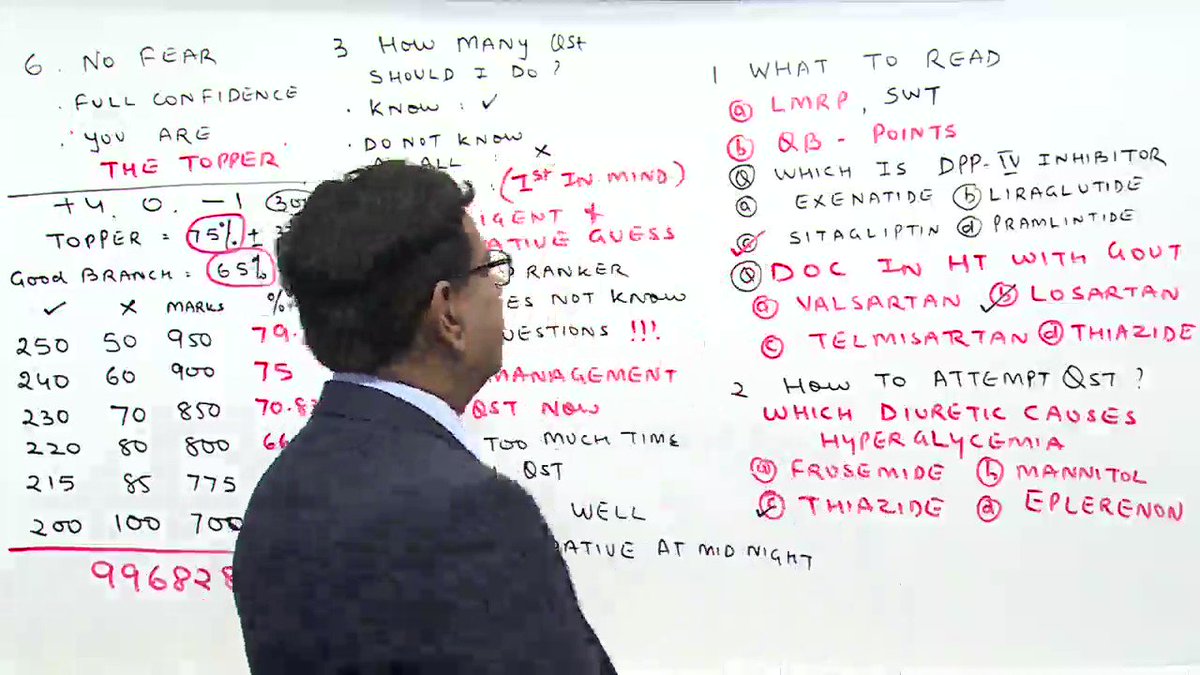 6. NO FEAR
. FULL CONFIDENCE
. YOU ARE
THE TOPPER.
+4. 0. -1
TOPPER = 75% ±
GOOD BRANCH = 65%
✓ × MARKS %
250 50 950 79.
240 60 900 75
230 70 850 70.8
220 80 800 66
215 85 775
200 100 700
996828
3 HOW MANY QST
SHOULD I DO?
. KNOW : ✓
. DO NOT KNOW
ALL : ×
(1st IN MIND)
IGENT &
ATIVE GUESS
RANKER
ES NOT KNOW
UESTIONS !!!
MANAGEMENT
QST NOW
TOO MUCH TIME
QST
WELL
ATIVE AT MID NIGHT
1 WHAT TO READ
(a) LMRP, SWT
(b) QB - POINTS
(Q) WHICH IS DPP-IV INHIBITOR
(a) EXENATIDE (b) LIRAGLUTIDE
(c) SITAGLIPTIN (d) PRAMLINTIDE
(Q) DOC IN HT WITH GOUT
(a) VALSARTAN (b) LOSARTAN
(c) TELMISARTAN (d) THIAZIDE
2 HOW TO ATTEMPT QST?
WHICH DIURETIC CAUSES
HYPERGLYCEMIA
(a) FRUSEMIDE (b) MANNITOL
(c) THIAZIDE (d) EPLERENON